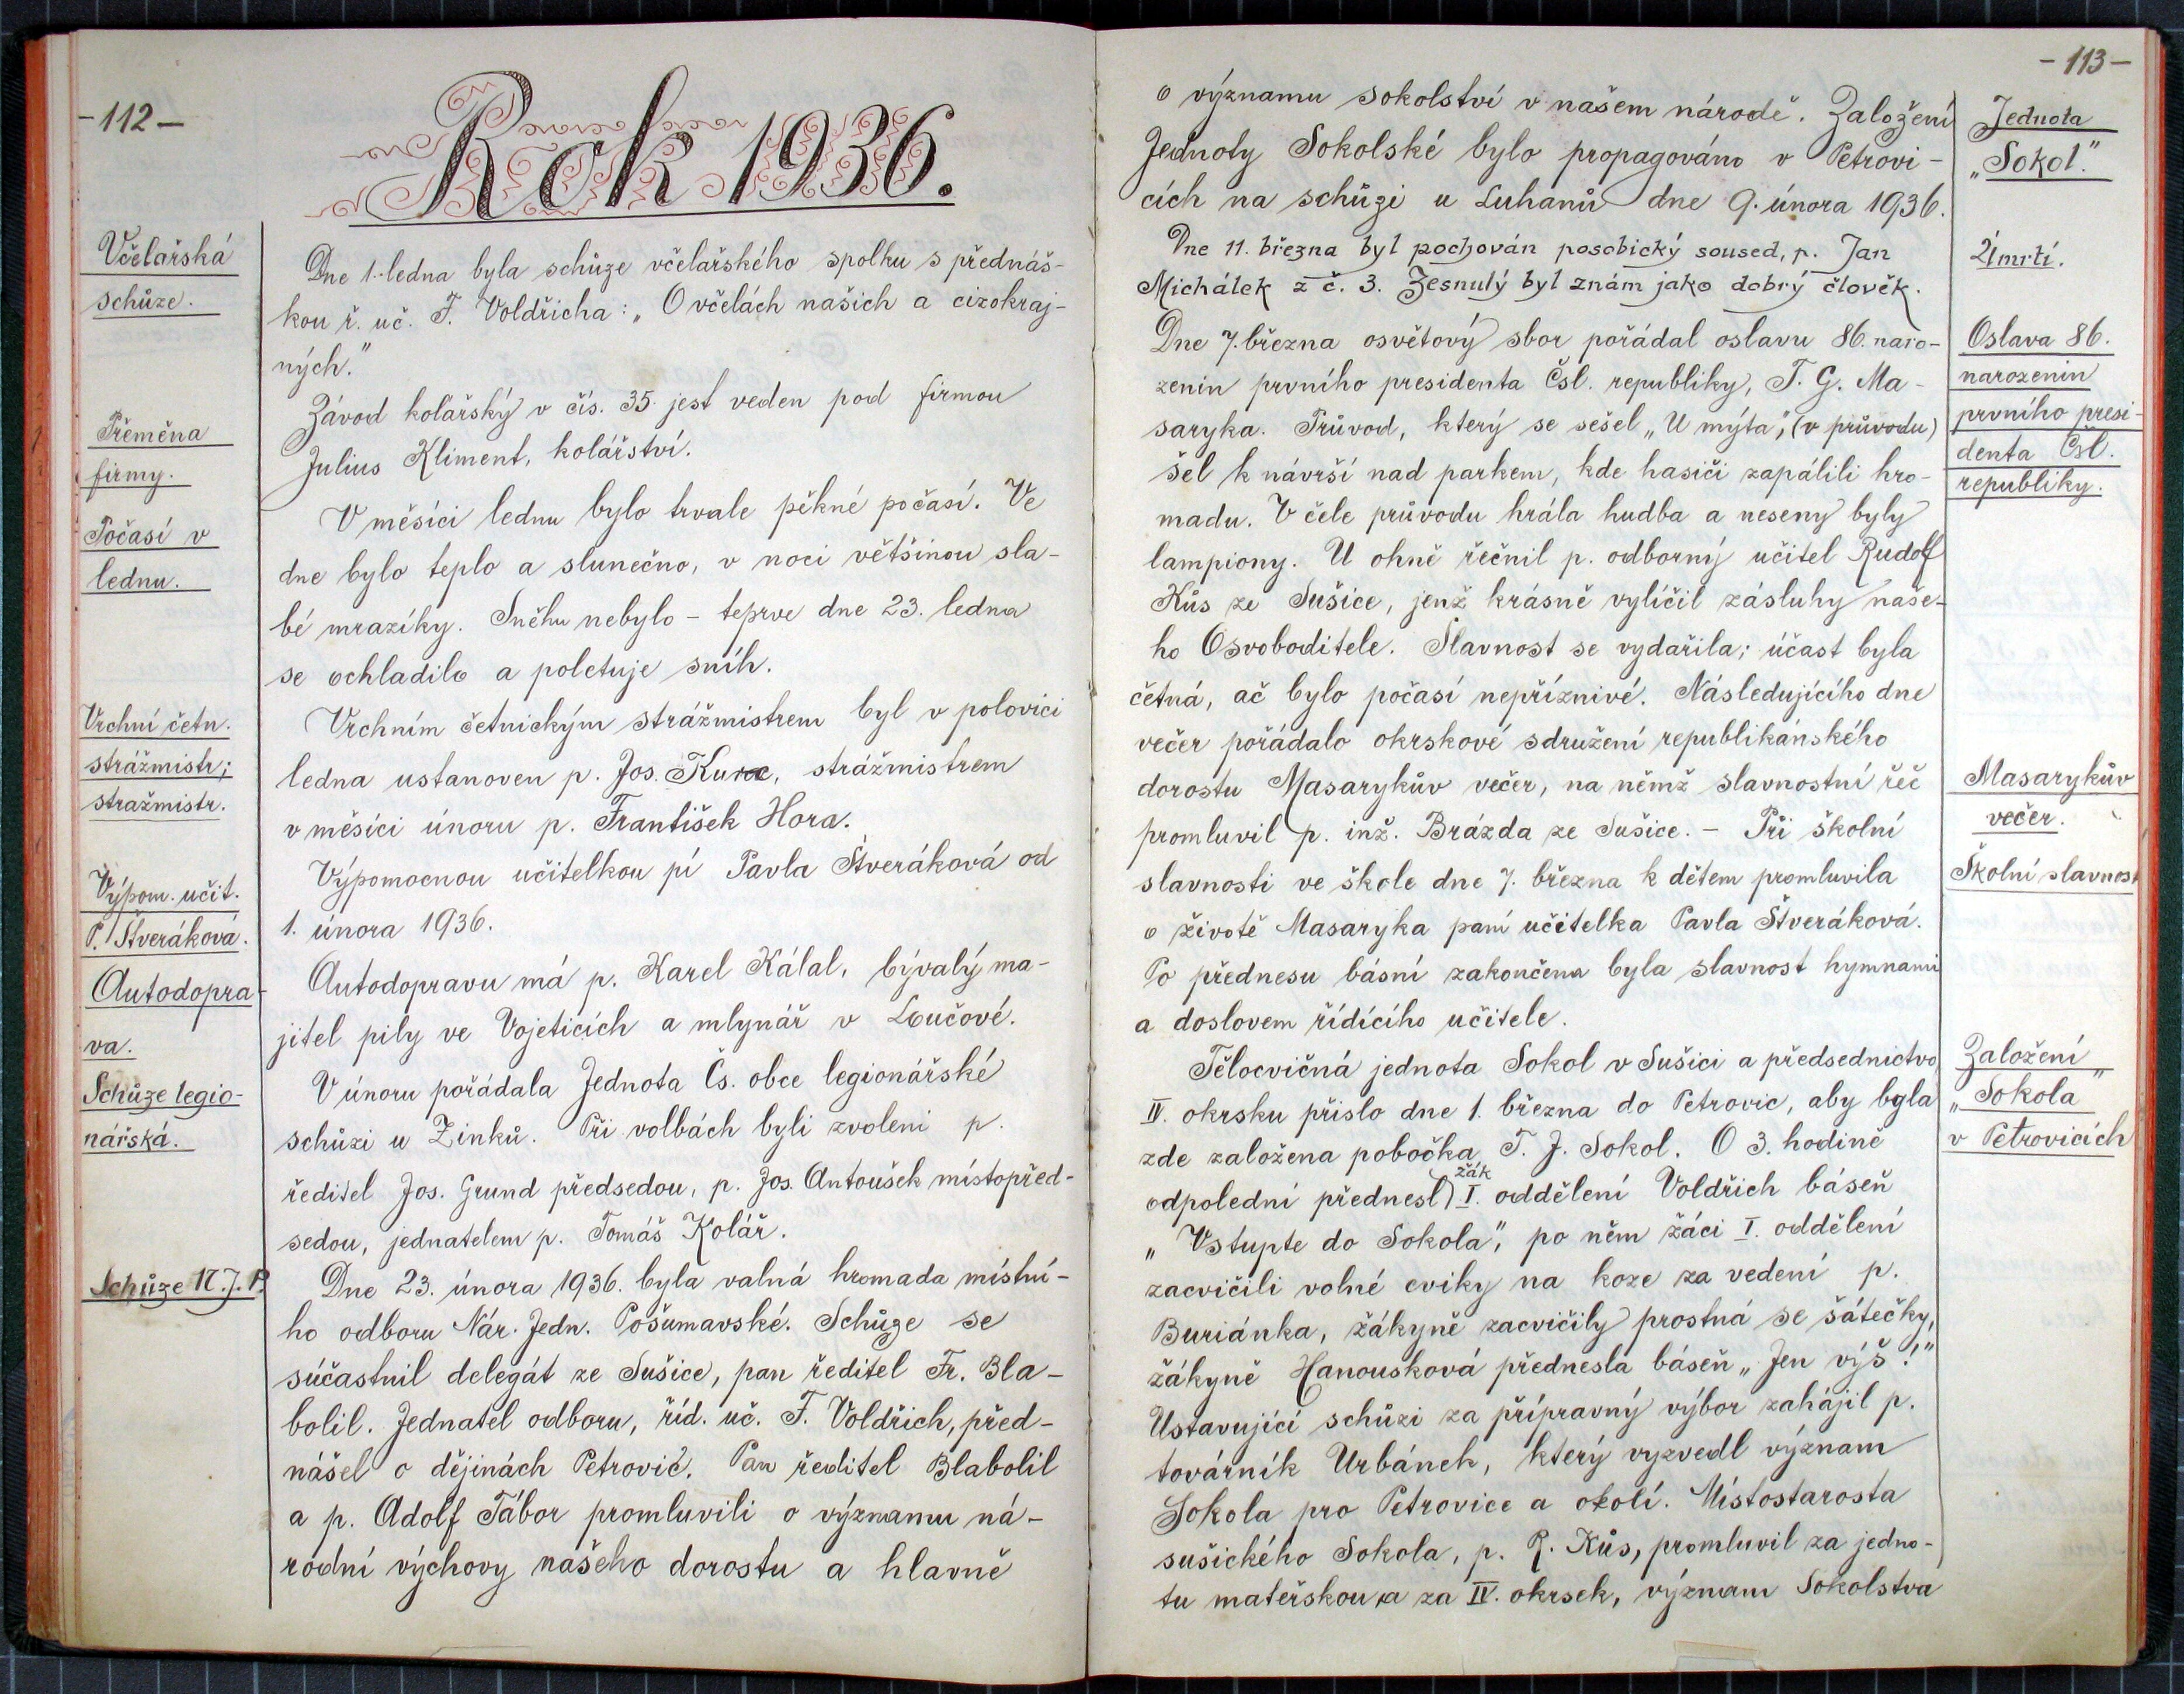 -112-
Rok 1936.
Včelařská
schůze.
Dne 1. ledna byla schůze včelařského spolku s přednáš-
kou ř. uč. F. Voldřicha: „O včelách našich a cizokraj-
ných."
Přeměna
firmy.
Závod kolářský v čís. 35 jest veden pod firmou
Julius Kliment, kolářství.
Počasí v
lednu.
V měsíci lednu bylo trvale pěkné počasí. Ve
dne bylo teplo a slunečno, v noci většinou sla-
bé mrazíky. Sněhu nebylo - teprve dne 23. ledna
se ochladilo a poletuje sníh.
Vrchní četn.
strážmistr;
stražmistr.
Vrchním četnickým strážmistrem byl v polovici
ledna ustanoven p. Jos. Kurc, strážmistrem
v měsíci únoru p. František Hora.
Výpom. učit.
P. Štveráková.
Výpomocnou učitelkou pí Pavla Štveráková od
1. února 1936.
Autodopra-
va.
Autodopravu má p. Karel Kálal, bývalý ma-
jitel pily ve Vojeticích a mlynář v Lučové.
Schůze legio-
nářská.
V únoru pořádala Jednota Čs. obce legionářské
schůzi u Zinků. Při volbách byli zvoleni p.
ředitel Jos. Grund předsedou, p. Jos. Antoušek místopřed-
sedou, jednatelem p. Tomáš Kolář.
Schůze N. J. P.
Dne 23. února 1936. byla valná hromada místní-
ho odboru Nár. Jedn. Pošumavské. Schůze se
súčastnil delegát ze Sušice, pan ředitel Fr. Bla-
bolil. Jednatel odboru, říd. uč. F. Voldřich, před-
nášel o dějinách Petrovic. Pan ředitel Blabolil
a p. Adolf Tábor promluvili o významu ná-
rodní výchovy našeho dorostu a hlavně
-113-
o významu sokolství v našem národě. Založení
Jednoty Sokolské bylo propagováno v Petrovi-
cích na schůzi u Luhanů dne 9. února 1936.
Jednota
„Sokol."
Dne 11. března byl pochován posobický soused, p. Jan
Michálek z č. 3. Zesnulý byl znám jako dobrý člověk.
Úmrtí.
Dne 7. března osvětový sbor pořádal oslavu 86. naro-
zenin prvního presidenta Čsl. republiky, T. G. Ma-
saryka. Průvod, který se sešel „U mýta", (v průvodu)
šel k návrší nad parkem, kde hasiči zapálili hro-
madu. V čele průvodu hrála hudba a neseny byly
lampiony. U ohně řečnil p. odborný učitel Rudolf
Kůs ze Sušice, jenž krásně vylíčil zásluhy naše-
ho Osvoboditele. Slavnost se vydařila; účast byla
četná, ač bylo počasí nepříznivé. Následujícího dne
večer pořádalo okrskové sdružení republikánského
dorostu Masarykův večer, na němž slavnostní řeč
promluvil p. inž. Brázda ze Sušice. - Při školní
slavnosti ve škole dne 7. března k dětem promluvila
o životě Masaryka paní učitelka Pavla Štveráková.
Po přednesu básní zakončena byla slavnost hymnami
a doslovem řídícího učitele.
Oslava 86.
narozenin
prvního presi-
denta Čsl.
republiky.
Masarykův
večer.
Školní slavnost
Tělocvičná jednota Sokol v Sušici a předsednictvo
IV. okrsku přislo dne 1. března do Petrovic, aby byla
zde založena pobočka T. J. Sokol. O 3. hodině
žák
odpolední přednesl I. oddělení Voldřich báseň
„Vstupte do Sokola", po něm žáci I. oddělení
zacvičili volné cviky na koze za vedení p.
Buriánka, žákyně zacvičily prostná se šátečky,
žákyně Hanousková přednesla báseň „Jen výš!"
Ustavující schůzi za přípravný výbor zahájil p.
továrník Urbánek, který vyzvedl význam
Sokola pro Petrovice a okolí. Místostarosta
sušického Sokola, p. R. Kůs, promluvil za jedno-
tu mateřskou a za IV. okrsek, význam Sokolstva
Založení
„Sokola"
v Petrovicích